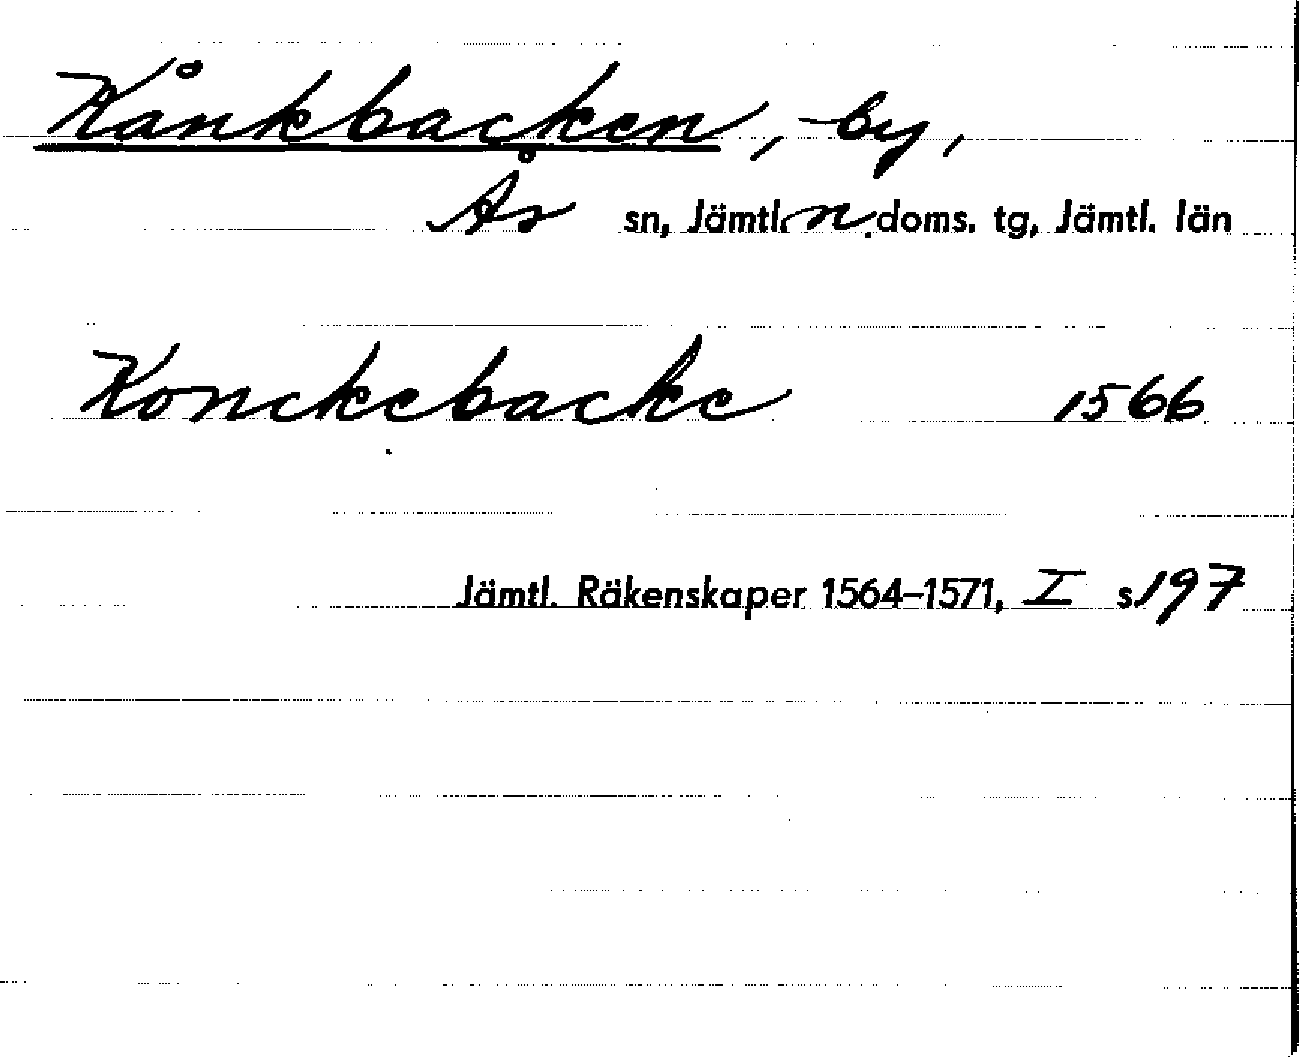 Kånkbacken, by,
Ås sn, Jämtl. n. doms. tg, Jämtl. län
Konckebacke 1566
Jämtl. Räkenskaper 1564–1571, I s. 197